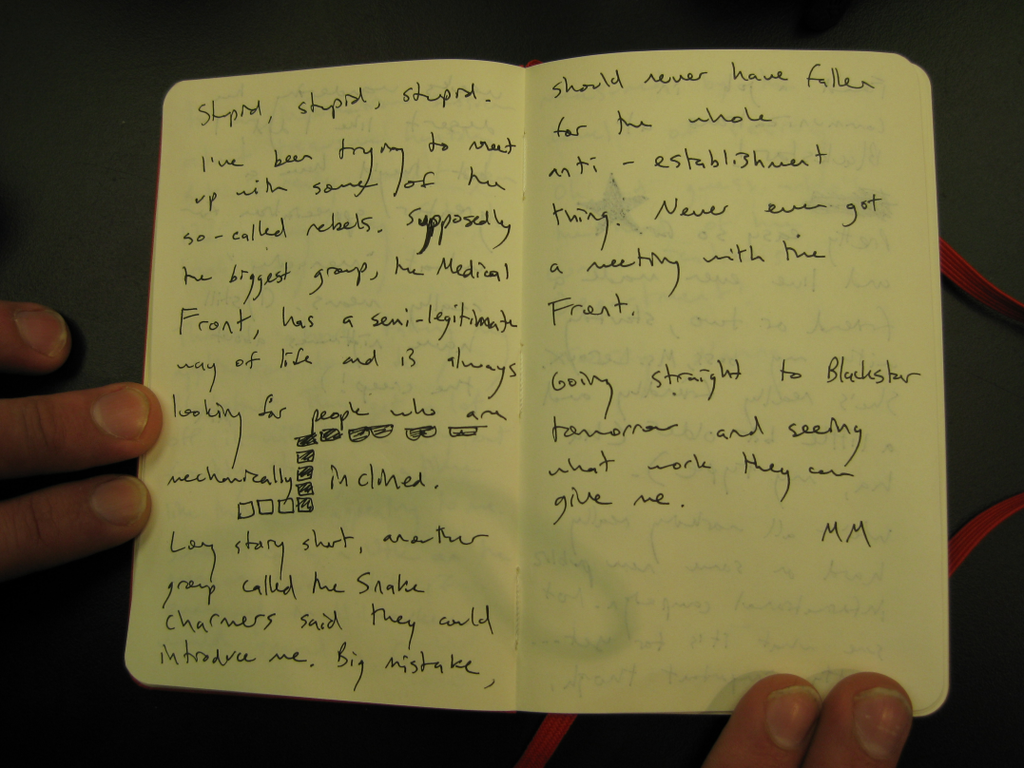 Stupid, stupid, stupid.
I've been trying to meet
up with some of the
so-called rebels. Supposedly
the biggest group, the Medical
Front, has a semi-legitimate
way of life and is always
looking for people who are
mechanically inclined.
Long story short, another
group called the Snake
charmers said they could
introduce me. Big mistake,
should never have fallen
for the whole
anti-establishment
thing. Never even got
a meeting with the
Front.
Going straight to Blackstar
tomorrow and seeing
what work they can
give me.
MM